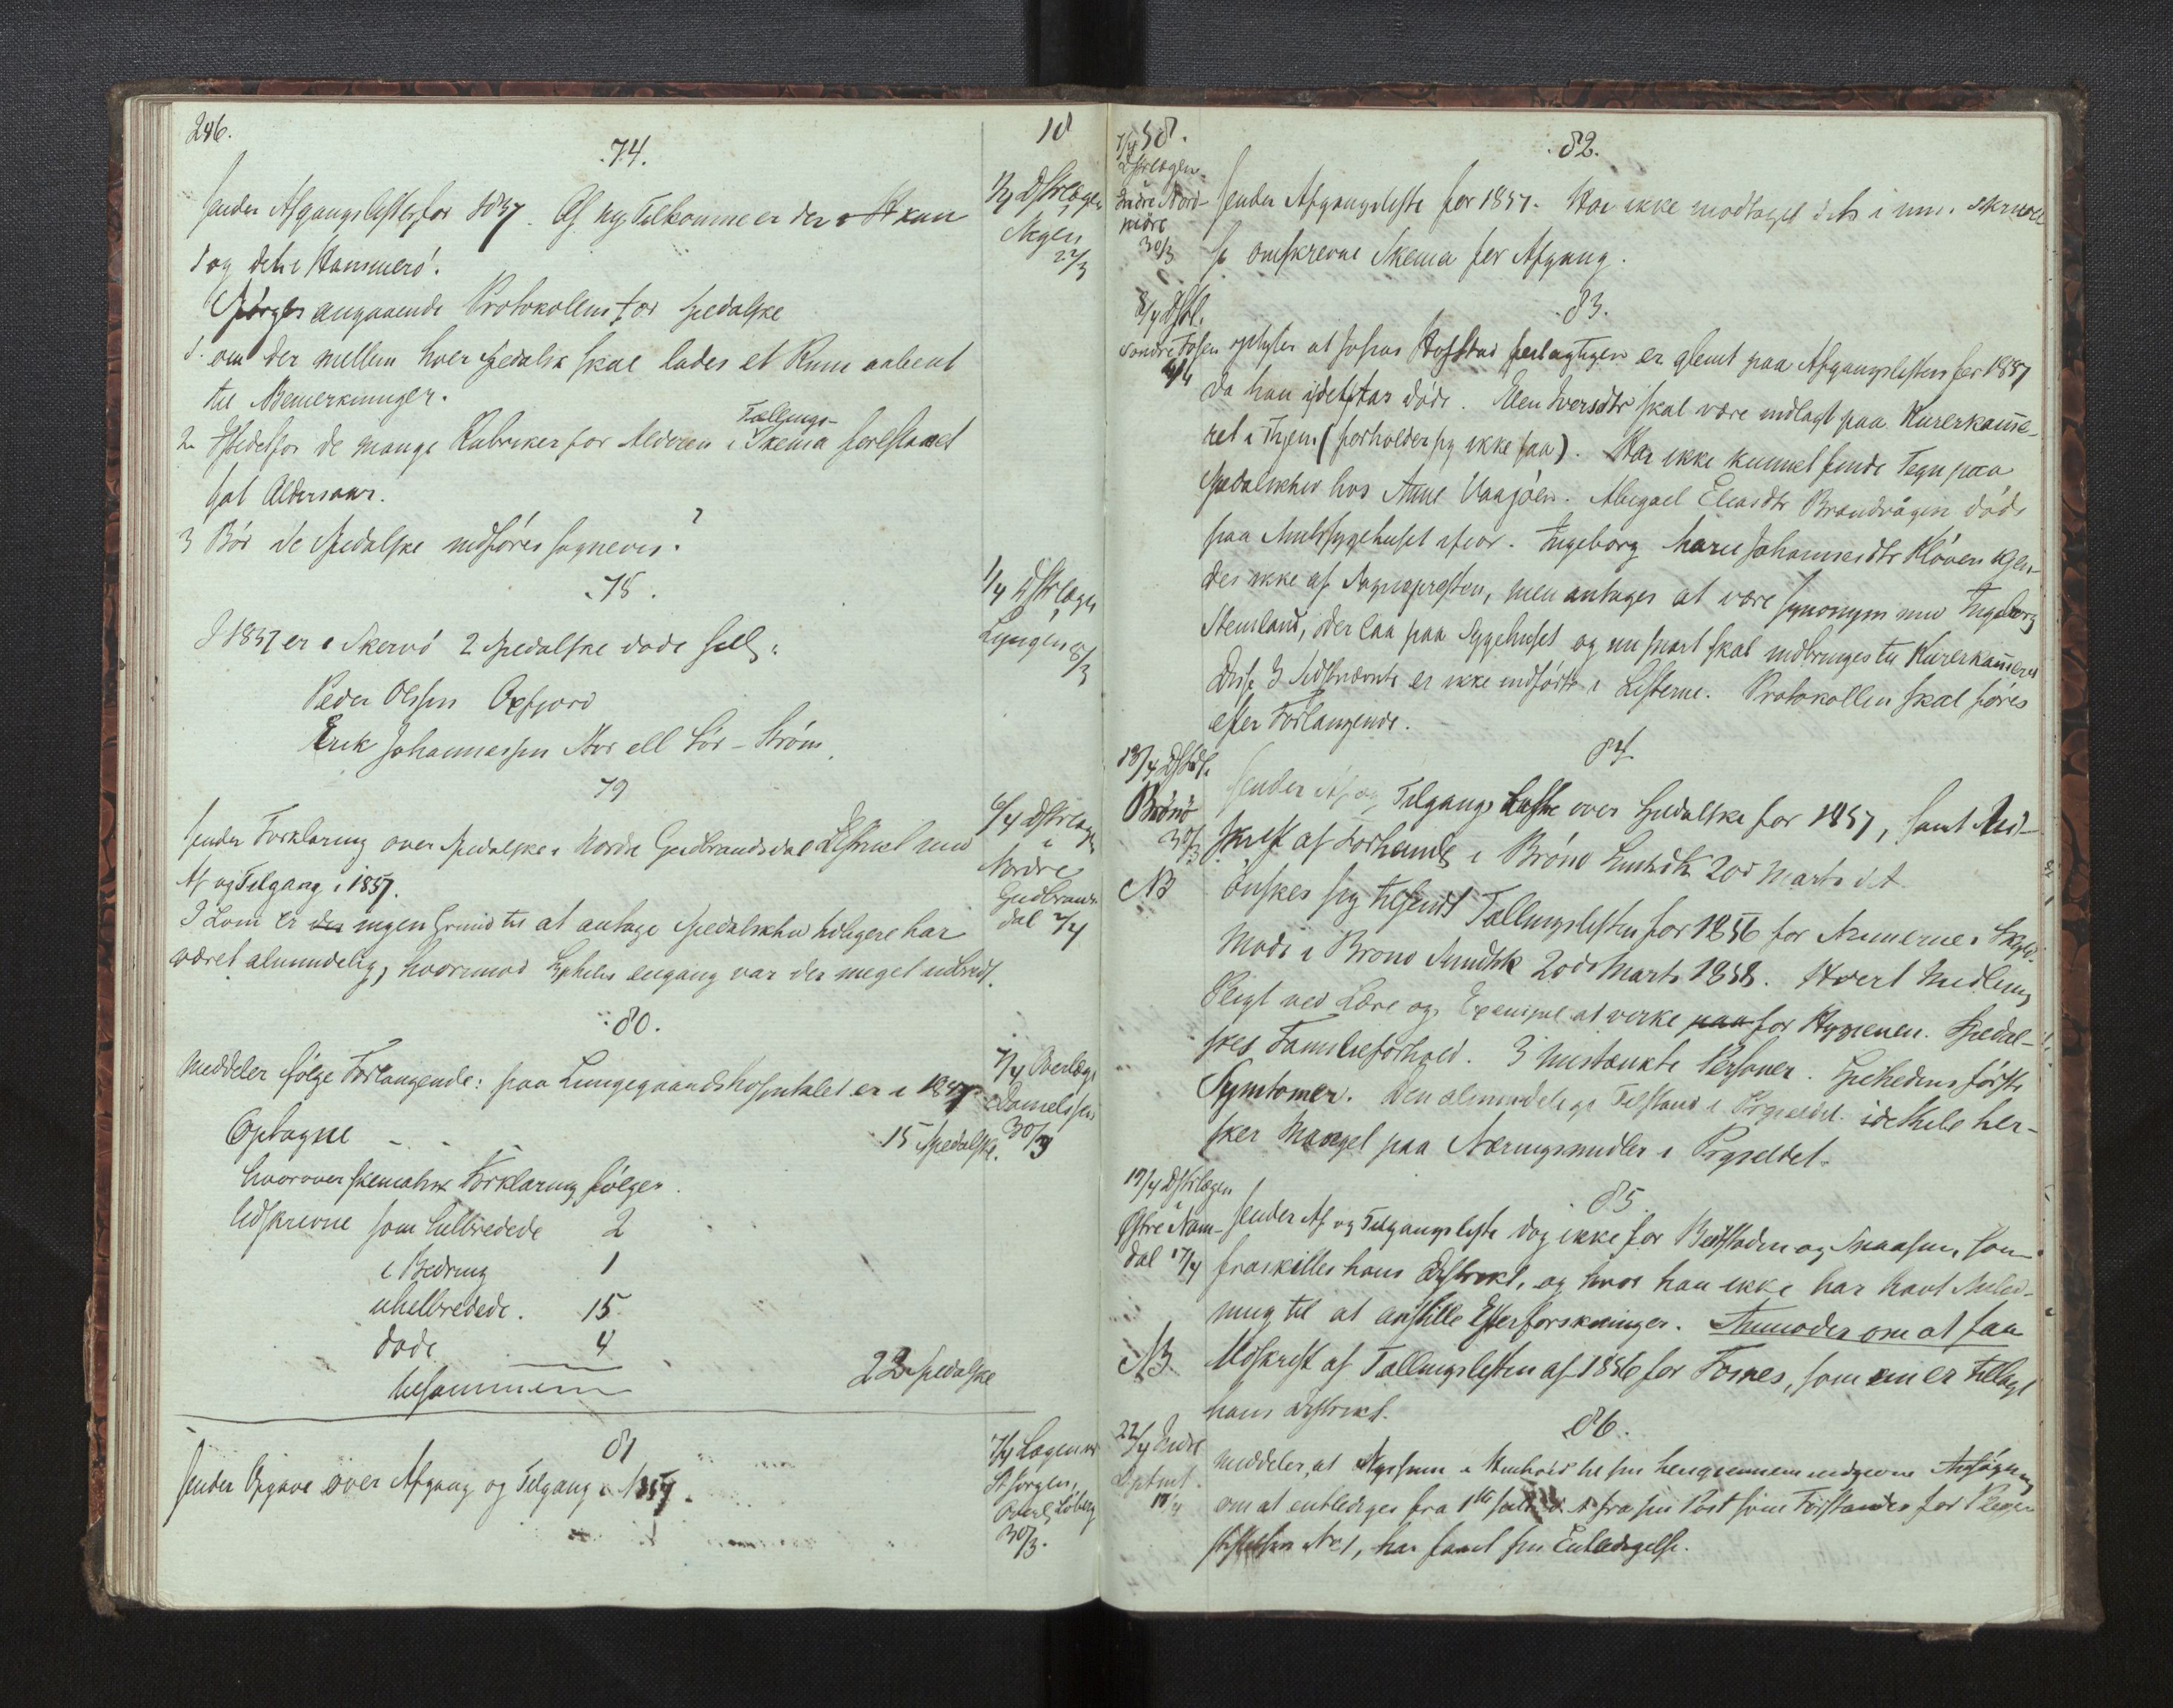 246.
18
74.
Sender Afgangslister for 1857. Af nye Tilkomne er der kun
1 og det i Hammerö.
Spörges angaaende Protokollen for Spedalske
1. om der mellem hver Spedalsk skal lades et Rum aabent
til Bemerkninger.
2. Istedetfor de mange Rubriker for Alderen i Tællings-Skema foreslaaes
Aldersaar.
3 Bör de Spedalske indföres sognevis?
1/4 Dstrlægen
22/3
78.
I 1857 er i Skervö 2 Spedalske döde
Peder Olsen Oxfjord
Erik Johannessen Nor ell Sör-Ström.
1/4 Dstrlægen
Lyngen 8/3
79
Sender Forklaring over Spedalske i Nordre Gudbrandsdals Distrikt med
Af og Tilgang i 1857.
I Lom er der ingen Grund til at antage Spedalskhed tidligere har
været almindelig, hvorimod Syphilis engang var der meget udbredt.
6/4 Dstrlægen
i
Nordre
Gudbrands-
dal 2/4
80.
Meddeler fölge Forlangende: paa Lungegaardshospitalet er i 1857
Optagne 15 Spedalske.
hvorover skematisk Forklaring fölger.
Udskrevne som helbredede 2
i Bedring 1
uhelbredede. 15
döde 4
tilsammen 22 Spedalske
7/4 Overlæge
Danielssen
30/3
81
Sender Opgave over Afgang og Tilgang i 1857.
7/4 Lægen ved
St Jörgen,
Overl. Löberg
30/3.
58.
82.
7/4
Dstrlægen
Indre Nord-
möre
30/3
Sender Afgangsliste for 1857. Har ikke modtaget det i min Skrivelse
omskrevne Skema for Afgang.
83.
8/4 Dstl.
Söndre Fosen
oplyser at Jonas Hofstad feilagtigen er glemt paa Afgangslisten for 1857
da han i det Aar döde. Ellen Iversdtr skal være indlagt paa Kurerkamme-
ret i Thjem (forholder sig ikke saa). Har ikke kunnet finde Tegn paa
Spedalskhed hos Anne Vaajöen. Abigael Eliasdtr Brandvågen döde
paa Amtssygehuset ifior. Ingeborg Marie Johannesdtr Klöven kjen-
des ikke af Sognepresten, men antages at være synonym med Ingeborg
Stensland, der laa paa Sygehuset og nu snart skal indbringes til Kurerkammeret
Disse 3 Sidstnævnte er ikke indförte i Listerne. Protokollen skal föres
efter Forlangende.
84
13/4 Dstl.
Brönö
30/3
NB
Sender Af og Tilgangs Liste over Spedalske for 1857, samt Ud-
skrift af Forhandl i Brönö Sundhk 20de Marts d.A.
Önskes sig tilsendt Tællingslisten for 1856 for
Möde i Brönö Sundhk 20de Marts 1858. Hvert Medlems
Pligt ved Lære og Exempel at virke paa for Hygienen. Spedal-
skes Familieforhold. 3 mistænkte Personer. Spedhedens förste
Symtomer. Den almindelige Tilstand i Prgjeldet. idethele her-
sker Mangel paa Næringsmidler i Prgjeldet.
85.
17/4 Dstrlægen
Östre Nam-
dal 17/4
NB
Sender Af og Tilgangsliste dog ikke for Beitstaden og Snaasen, som
fraskilles hans Distrikt, og hvor han ikke har havt Anled-
ning til at anstille Efterforskninger. Anmoder om at faa
Udskrift af Tællingslisten af 1856 for Fosnes, som nu er tillagt
hans Distrikt.
86.
22/4 Indre
Dptmt.
17/4
Meddeler, at Nyssum i Henhold til sin hergjennem indgivne Ansögning
om at entlediges fra 1ste Juli d.A fra sin Post som Forstander for Pleje-
stiftelsen No 1, har faaet sin Entledigelse.